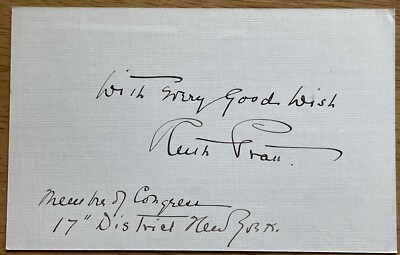 With Every Good Wish
Ruth Pratt.
Member of Congress
17" District New York.